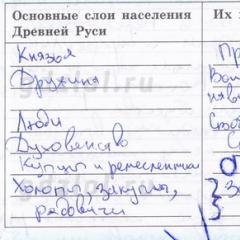 Основные слои населения
Древней Руси
Их
Князья
Дружина
Люди
Духовенство
Купцы и ремесленники
Холопы, закупы,
рядовичи